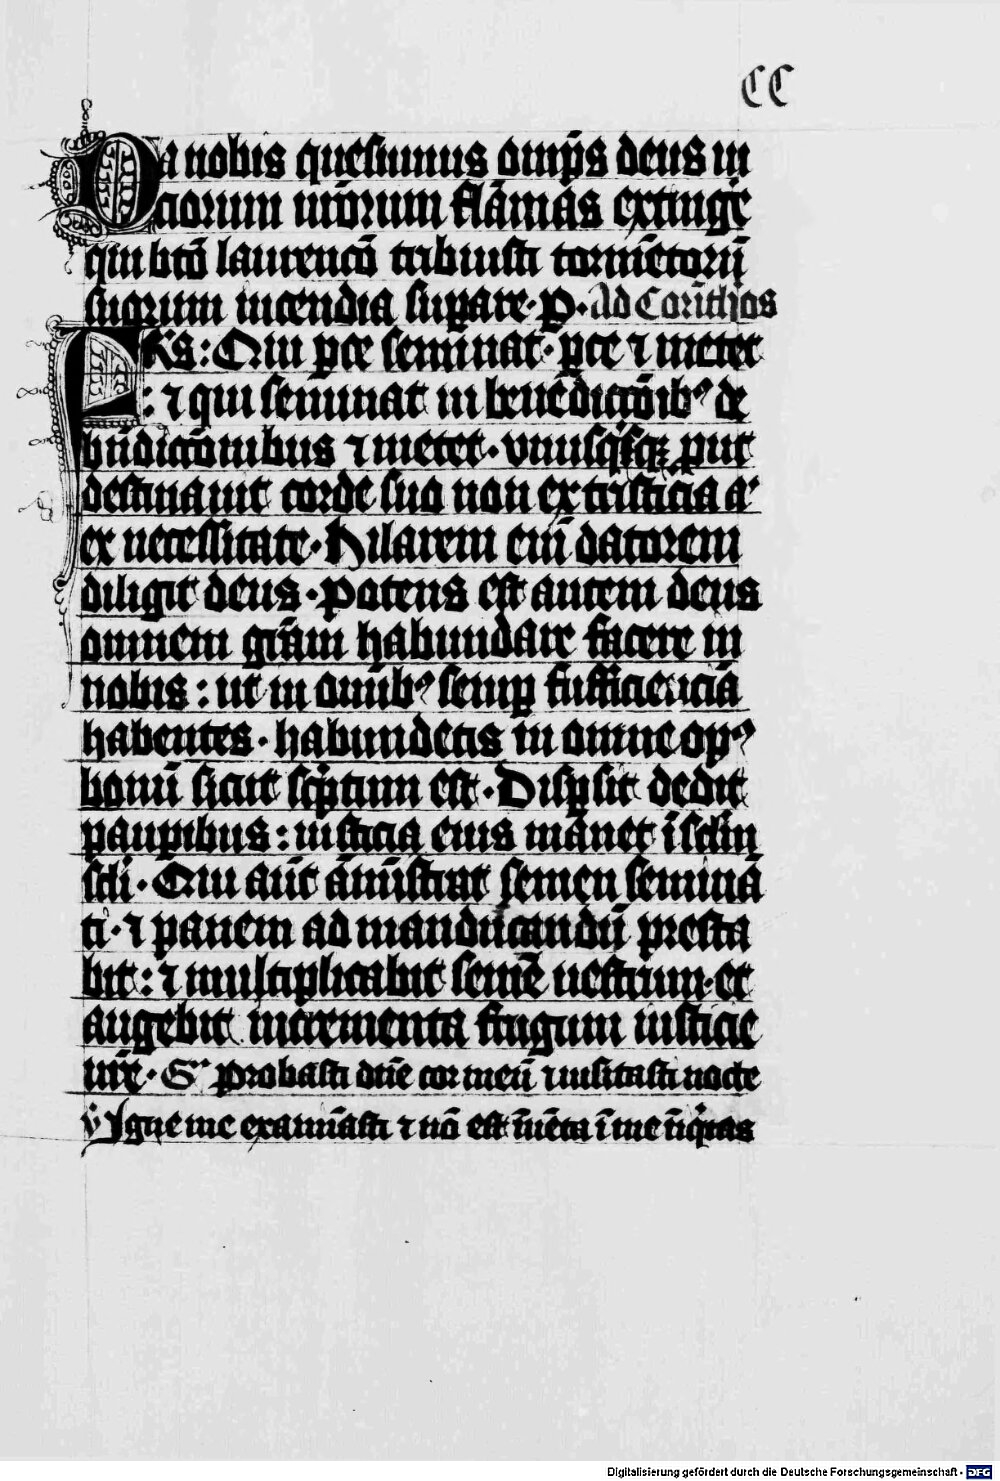 CC
Da nobis quesumus omp̄s deus ui
ciorum nr̄orum flāmas extingē
qui btō laurencō tribuisti tormētorū
suorum incendia sup̄are· p̲· Ad Corinthios
FRS: Qui p̲ce seminat· p̲ce ⁊ metet
: ⁊ qui seminat in benēdictōib⁹ de
bn̄dictōnibus ⁊ metet· vnusq̄sqꝫ put
destinauit corde suo non ex tristicia a'
ex necessitate· Hilarem eni᷑ datorem
diligit deus· Potens est autem deus
omnem grām habundare facere in
nobis: ut in omīb⁹ semp̲ sufficienciā
habentes· habundetis in omne op⁹
bonū sicut sc̄ptum est· Disp̲sit dedit
paup̲ibus: iusticia eius manet ī sclm̄
scli· Qui aūt āmīstrat semen seminā
ti· ⁊ panem ad manducandū presta
bit: ⁊ multiplicabit semē uestrum· et
augebit incrementa frugum iusticie
ur̄e· Gr Probasti dn̄e cor meū ⁊ uisitasti nocte
v̄ Igne me examīasti ⁊ nō est īuēta ī me īiq̄tas
Digitalisierung gefördert durch die Deutsche Forschungsgemeinschaft - DFG